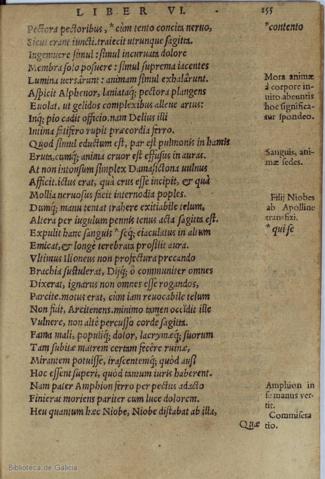 LIBER VI. 155
Pectora pectoribus, *cùm tento concita neruo, *contento
Sicut erant iuncti, traiecit utrunque sagitta.
Ingemuere simul: simul incuruata dolore
Membra solo posuere: simul suprema iacentes
Lumina uersârunt: animam simul exhalârunt. Mora animæ
Aspicit Alphenor, laniataq; pectora plangens à corpore in-
Euolat, ut gelidos complexibus alleuet artus: tuito abeuntis
Inq; pio cadit officio. nam Delius illi hoc significa-
Intima fatifero rupit præcordia ferro. tur spondeo.
Quod simul eductum est, pars est pulmonis in hamis
Eruta, cumq́; anima cruor est effusus in auras. Sanguis, ani-
At non intonsum simplex Damasictona uulnus mæ sedes.
Afficit. ictus erat, quà crus esse incipit, & quà
Mollia neruosus facit internodia poples. Filij Niobes
Dumq́; manu tentat trahere exitiabile telum, ab Apolline
Altera per iugulum pennis tenus acta sagitta est. transfixi.
Expulit hanc sanguis *seq́; eiaculatus in altum *qui se
Emicat, & longè terebrata prosilit aura.
Vltimus Ilioneus non profectura precando
Brachia sustulerat, Dijq́; ô communiter omnes
Dixerat, ignarus non omnes esse rogandos,
Parcite. motus erat, cùm iam reuocabile telum
Non fuit, Arcitenens. minimo tamen occidit ille
Vulnere, non altè percusso corde sagitta.
Fama mali, populiq́; dolor, lacrymæq́; suorum
Tam subitæ matrem certam fecêre ruinæ,
Mirantem potuisse, irascentemq́; quòd ausi
Hoc essent superi, quòd tantum iuris haberent.
Nam pater Amphion ferro per pectus adacto Amphion in
Finierat moriens pariter cum luce dolorem. se manus ver-
tit.
Heu quantum hæc Niobe, Niobe distabat ab illa, Commisera
Quæ tio.
Biblioteca de Galicia